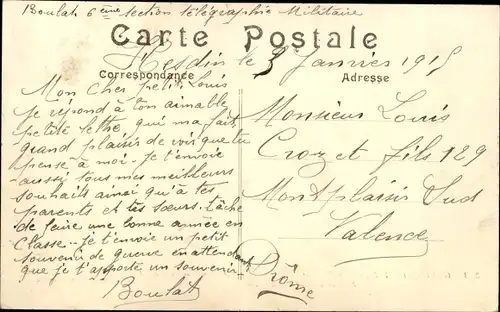 Boulat 6ème section télégraphie Militaire
Carte Postale
Hesdin le 5 Janvier 1915
Correspondance
Adresse
Mon cher petit Louis
je répond à ton aimable
petite lettre qui m'a fait
grand plaisir de voir que tu
pense à moi. Je t'envoie
aussi tous mes meilleurs
souhaits ainsi qu'à tes
parents et tes sœurs. Tâche
de faire une bonne année en
classe. je t'envoie un petit
souvenir de guerre en attendant
que je t'apporte un souvenir
Boulat
Monsieur Louis
Crozet fils 129
Montplaisir Sud
Valence
Drôme